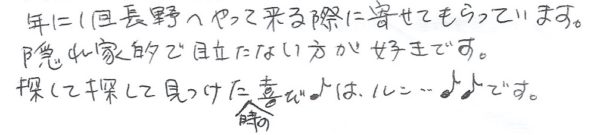 年に1回長野へやって来る際に寄せてもらっています。
隠れ家的で目立たない方が好きです。
探して探して見つけた時の喜び♪は、ルン…♪♪です。